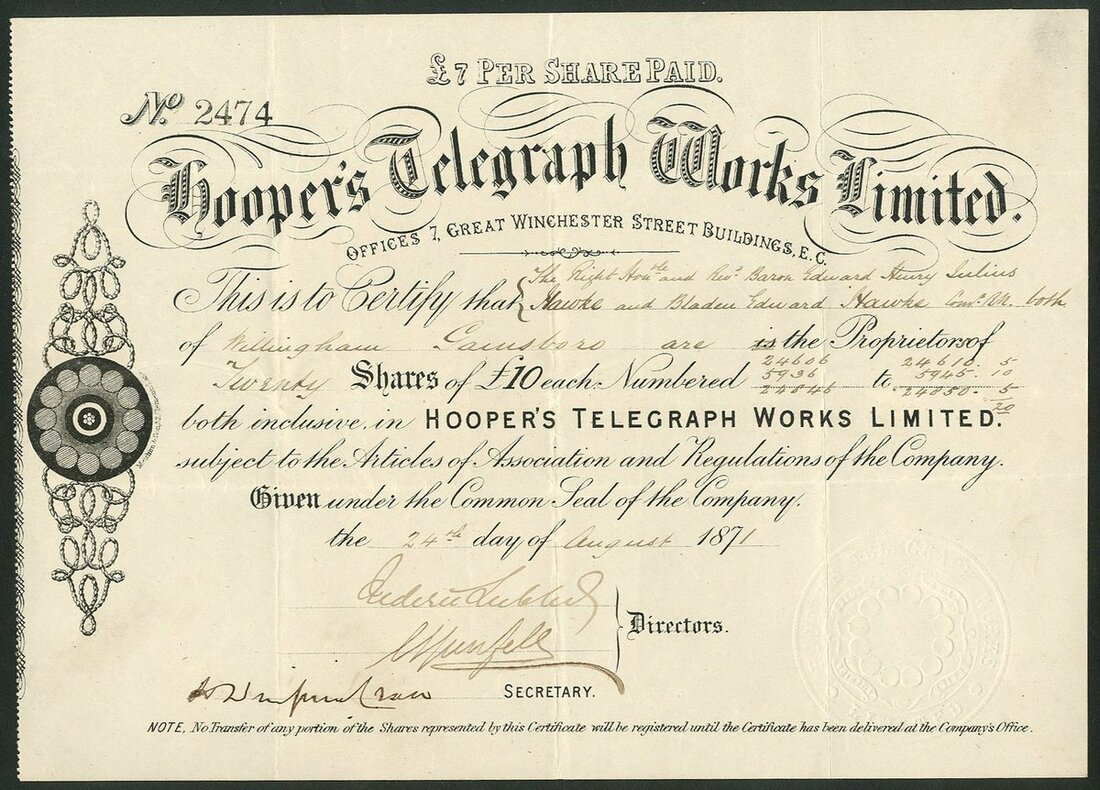 £7 PER SHARE PAID.
No. 2474
Hooper's Telegraph Works Limited.
OFFICES 7, GREAT WINCHESTER STREET BUILDINGS, E.C.
The Right Honble and Revd Baron Edward Henry Julius
This is to Certify that Hawke and Bladen Edward Hawke both
of Willingham Gainsboro are is the Proprietors of
24606 24610 5
Twenty Shares of £10 each Numbered 5936 to 5945 10
24846 24850 5
20
both inclusive, in HOOPER'S TELEGRAPH WORKS LIMITED.
subject to the Articles of Association and Regulations of the Company.
Given under the Common Seal of the Company.
the 24th day of August 1871
Directors.
SECRETARY.
NOTE, No Transfer of any portion of the Shares represented by this Certificate will be registered until the Certificate has been delivered at the Company's Office.